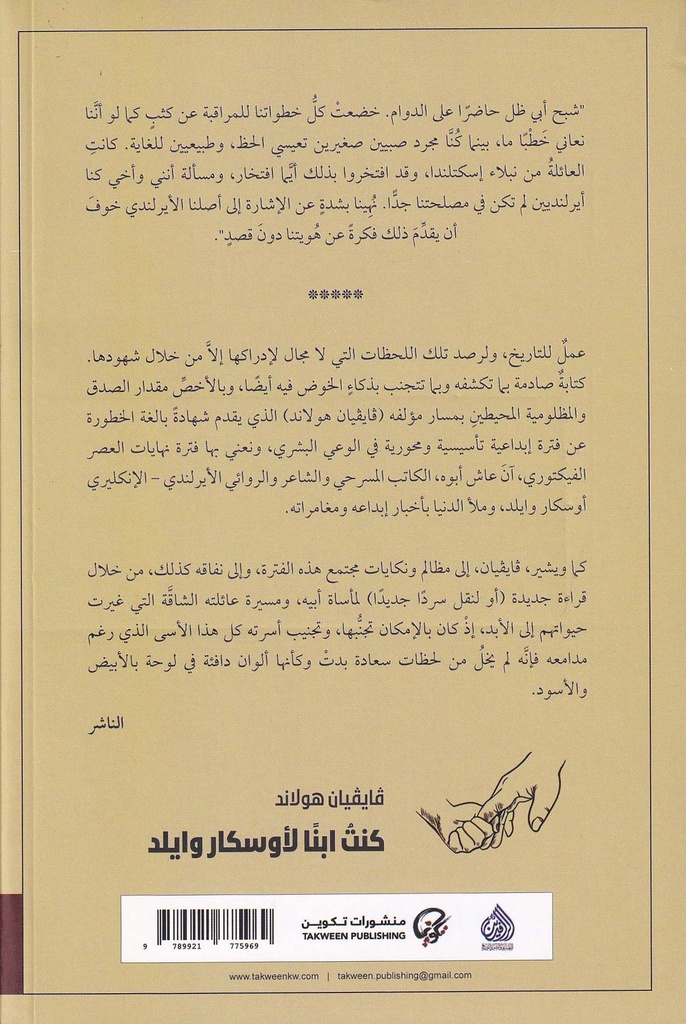 "شبح أبي ظل حاضرًا على الدوام. خضعتْ كلُّ خطواتنا للمراقبة عن كثبٍ كما لو أنَّنا
نعاني خَطْبًا ما، بينما كُنَّا مجرد صبيين صغيرين تعيسي الحظ، وطبيعيين للغاية. كانتِ
العائلةُ من نبلاء إسكتلندا، وقد افتخروا بذلك أيَّما افتخار، ومسألة أنني وأخي كنا
أيرلنديين لم تكن في مصلحتنا جدًّا. نُهِينا بشدةٍ عن الإشارة إلى أصلنا الأيرلندي خوفَ
أن يقدِّمَ ذلك فكرةً عن هُويتنا دونَ قصدٍ".
*****
عملٌ للتاريخ، ولرصد تلك اللحظات التي لا مجال لإدراكها إلاَّ من خلال شهودها.
كتابةٌ صادمة بما تكشفه وبما تتجنب بذكاءٍ الخوض فيه أيضًا، وبالأخصِّ مقدار الصدق
والمظلومية المحيطينِ بمسار مؤلفه (ڤايڤيان هولاند) الذي يقدم شهادةً بالغة الخطورة
عن فترة إبداعية تأسيسية ومحورية في الوعي البشري، ونعني بها فترة نهايات العصر
الفيكتوري، آنَ عاش أبوه، الكاتب المسرحي والشاعر والروائي الأيرلندي – الإنكليري
أوسكار وايلد، وملأ الدنيا بأخبار إبداعه ومغامراته.
كما ويشير، ڤايڤيان، إلى مظالم ونكايات مجتمع هذه الفترة، وإلى نفاقه كذلك، من خلال
قراءة جديدة (أو لنقل سردًا جديدًا) لمأساة أبيه، ومسيرة عائلته الشاقَّة التي غيرت
حيواتهم إلى الأبد، إذْ كان بالإمكان تجنُّبها، وتجنيب أسرته كل هذا الأسى الذي رغم
مدامعه فإنَّه لم يخلُ من لحظات سعادة بدتْ وكأنها ألوان دافئة في لوحة بالأبيض
والأسود.
الناشر
ڤايڤيان هولاند
كنتُ ابنًا لأوسكار وايلد
منشورات تكوين
TAKWEEN PUBLISHING
تكوين
9 789921 775969
www.takweenkw.com | takween.publishing@gmail.com